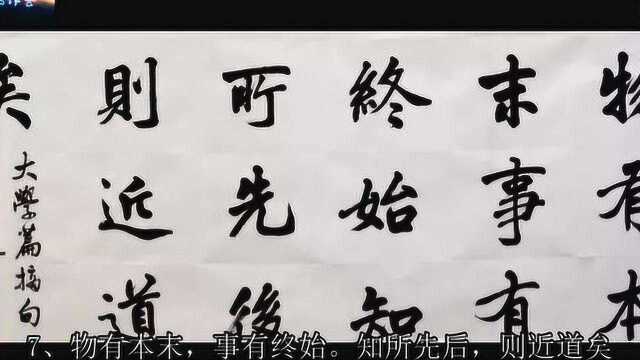 物有本
末事有
終始知
所先後
則近道
矣
大學篇摘句
7、物有本末，事有终始。知所先后，则近道矣